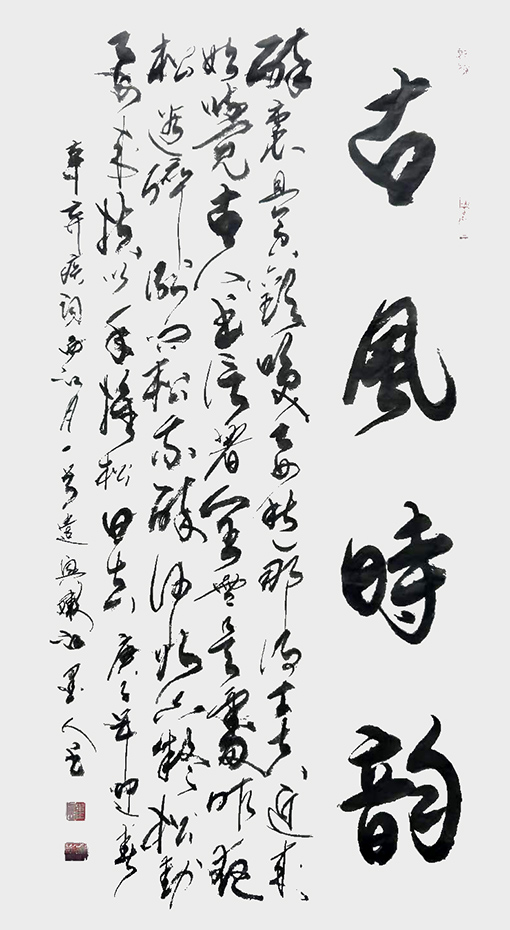 古風時韵
醉裏且貪歡笑要愁那得工夫近來
始覺古人書信著全無是處昨夜
松邊醉倒問松我醉何如只疑松動
要來扶以手推松曰去庚子年迎春
辛弃疾詞西江月一首遣興嫩江墨人